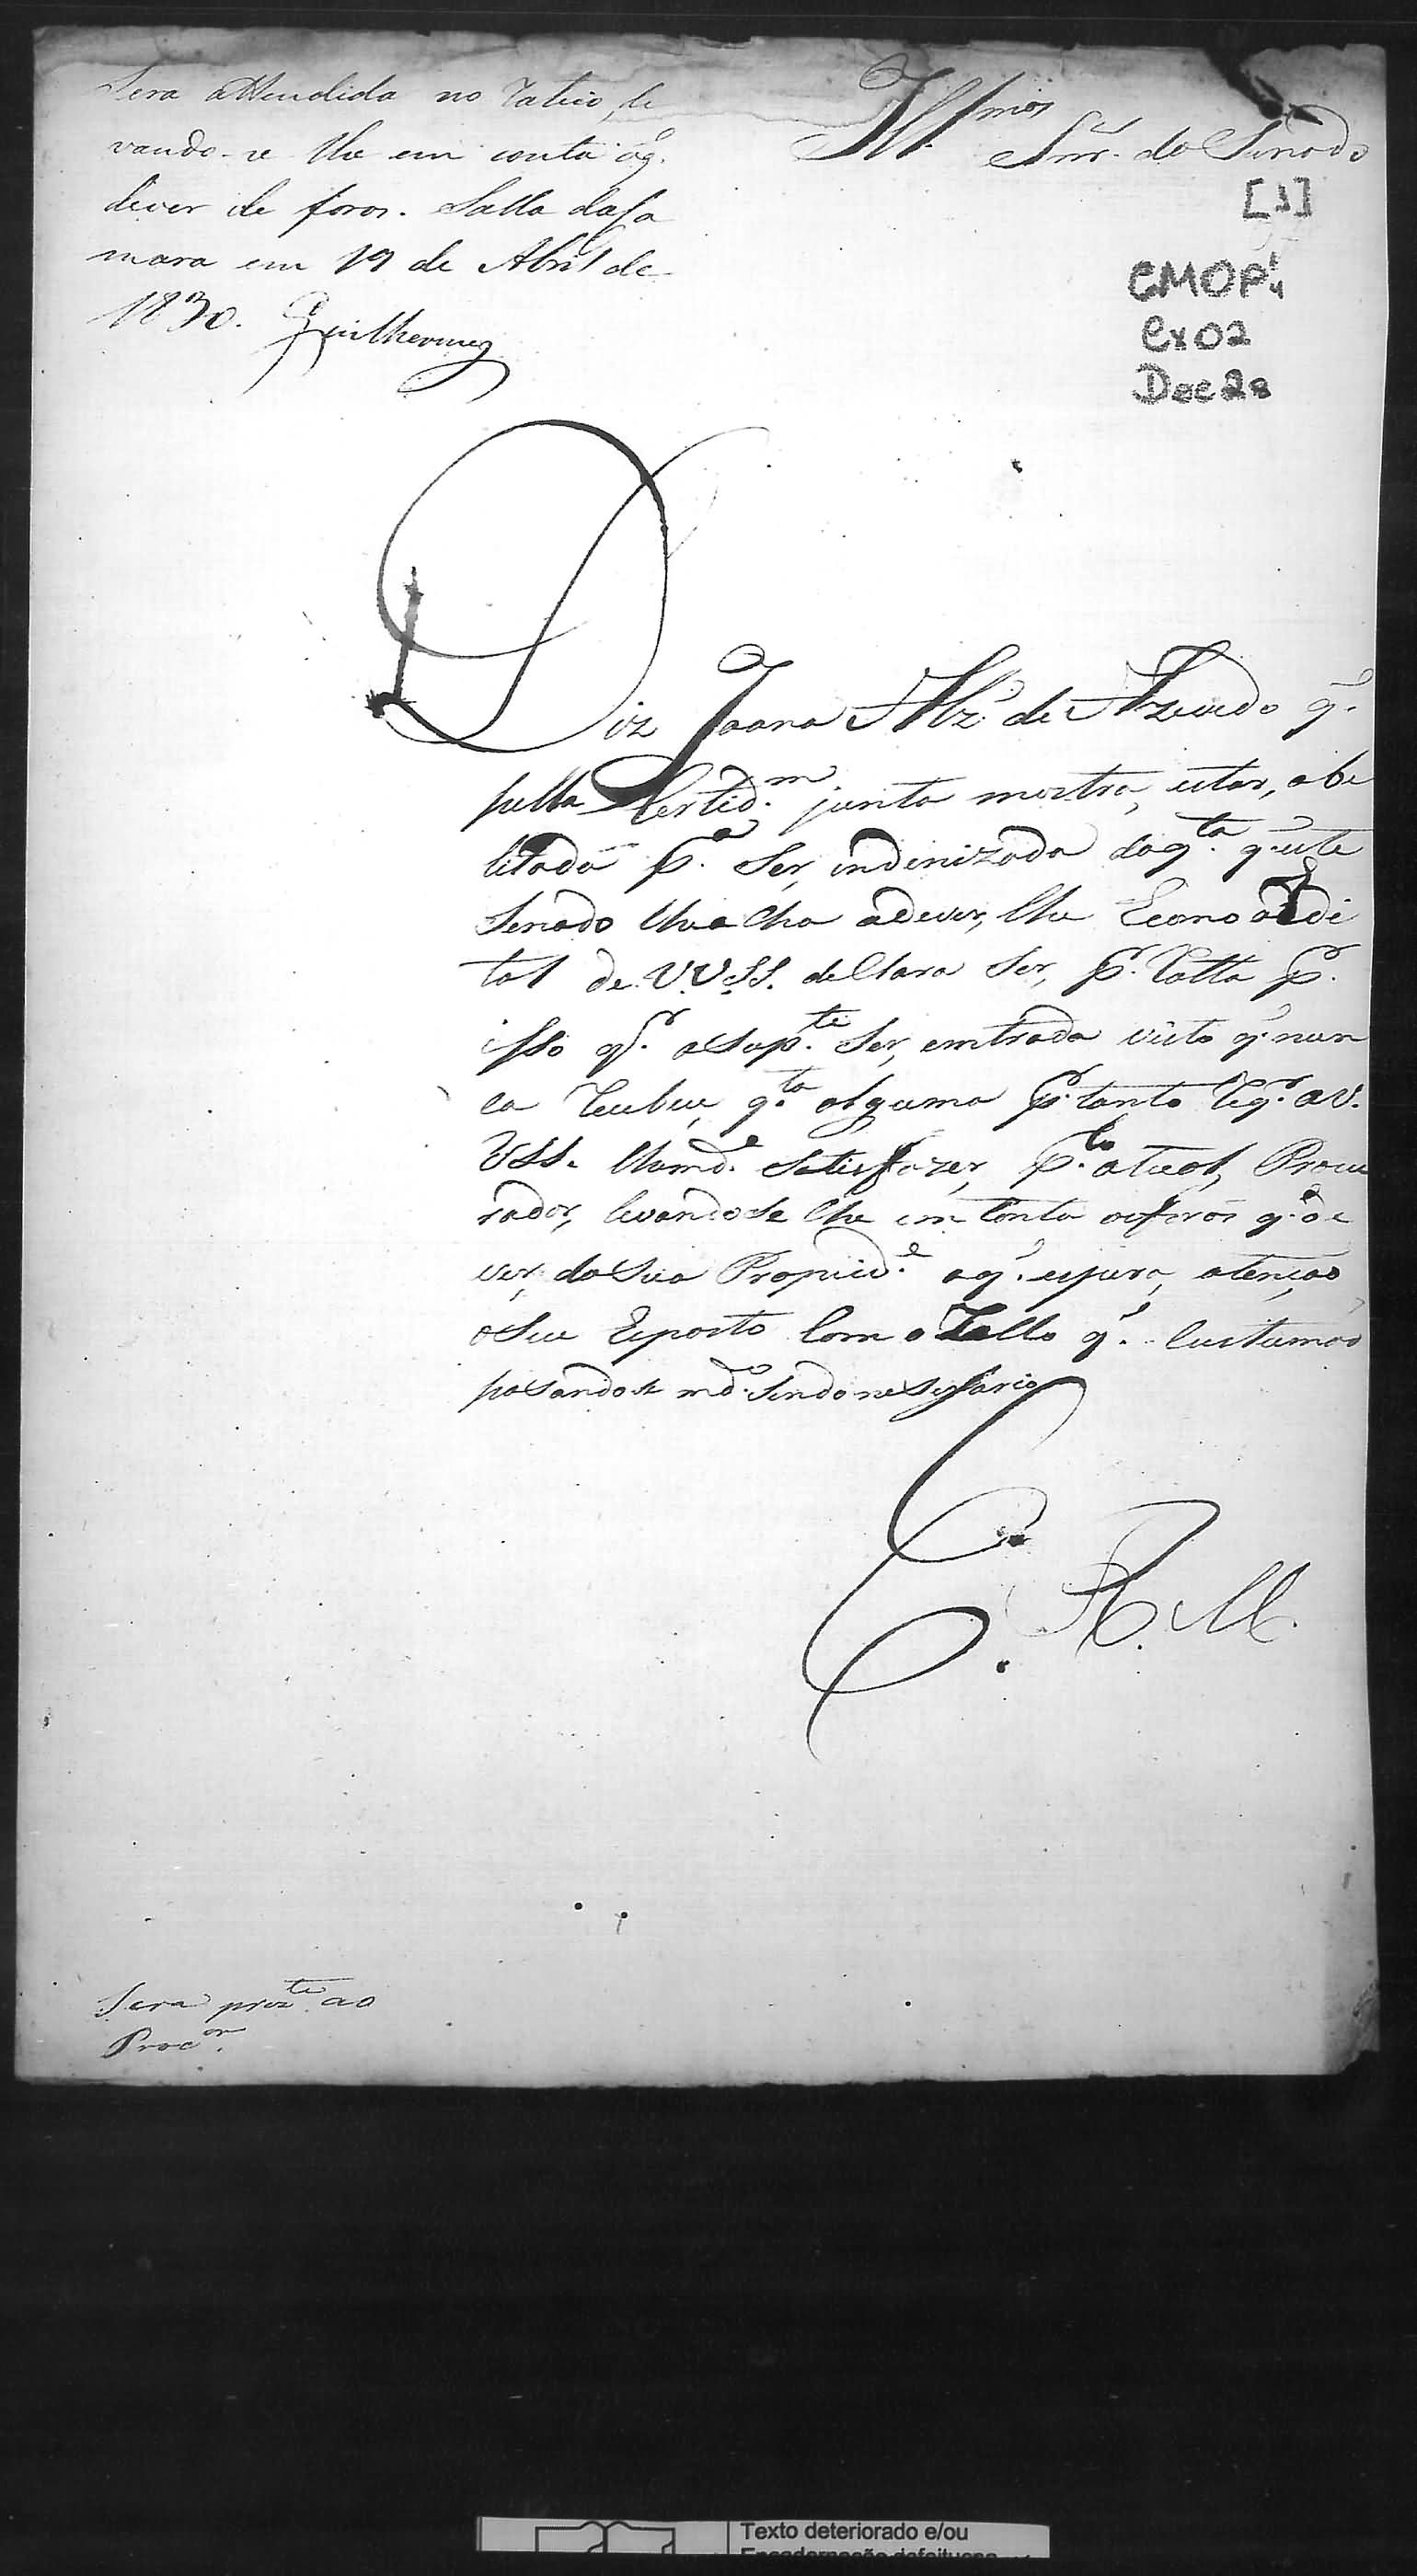 Sera attendida no Rateio, le
vando-se lhe em conta o q.
dever de foros. Salla da Ca
mara em 19 de Abril de
1830. Guilherme
Ill.mos Snr.es do Senado
[1]
CMOP
Cx 02
Doc 28
Diz Joana Alz' de Azevedo q.
pella Certid.m junta mostra, estar, abe
litada p.a Ser, indenizada daq.ta q. este
Senado lhe a dever, lhe Como o Edi
tal de V.V.S.S. declara Ser, p.r Ratta p.r
isso q.r a Sup.te Ser, emtrada visto q. nun
ca Recebeu, q.ta alguma p.r tanto Req.r a V.
V.SS. lha md.e Satisfazer, p.lo atual, Procu
rador, levandose lhe em Conta os foros q. de
ver, da Sua Propried.e a q. espera, atenção
o Seu Esposto Com o Zello q. Custumão
pasandose md.o Sendo nesessario
E. R. M.
Sera prez.te ao
Proc.or
Texto deteriorado e/ou
Encadernação defeituosa